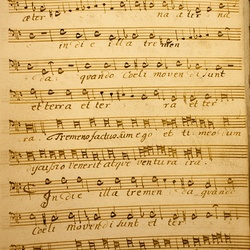 æter na et ter nd
in die illa tremen
da. quando Coeli movendi sunt
et terra et ter ra et ter
ra. Tremens factus sum ego et timeo dum
venerit atque ventura ira.
In die illa tremen da quando
Coeli movendi sunt et ter